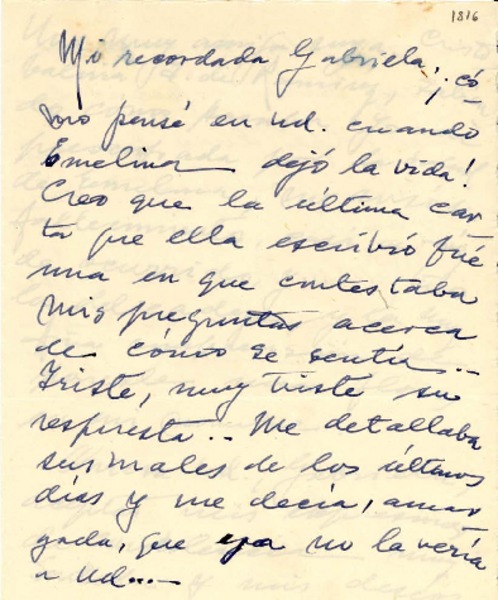 1816
Mi recordada Gabriela, ¡có-
mo pensé en Ud. cuando
Emelina dejó la vida!
Creo que la última car-
ta que ella escribió fué
una en que contestaba
mis preguntas acerca
de cómo se sentía...
Triste, muy triste su
respuesta... Me detallaba
sus males de los últimos
días y me decía, amar-
gada, que ya no la vería
a Ud...—